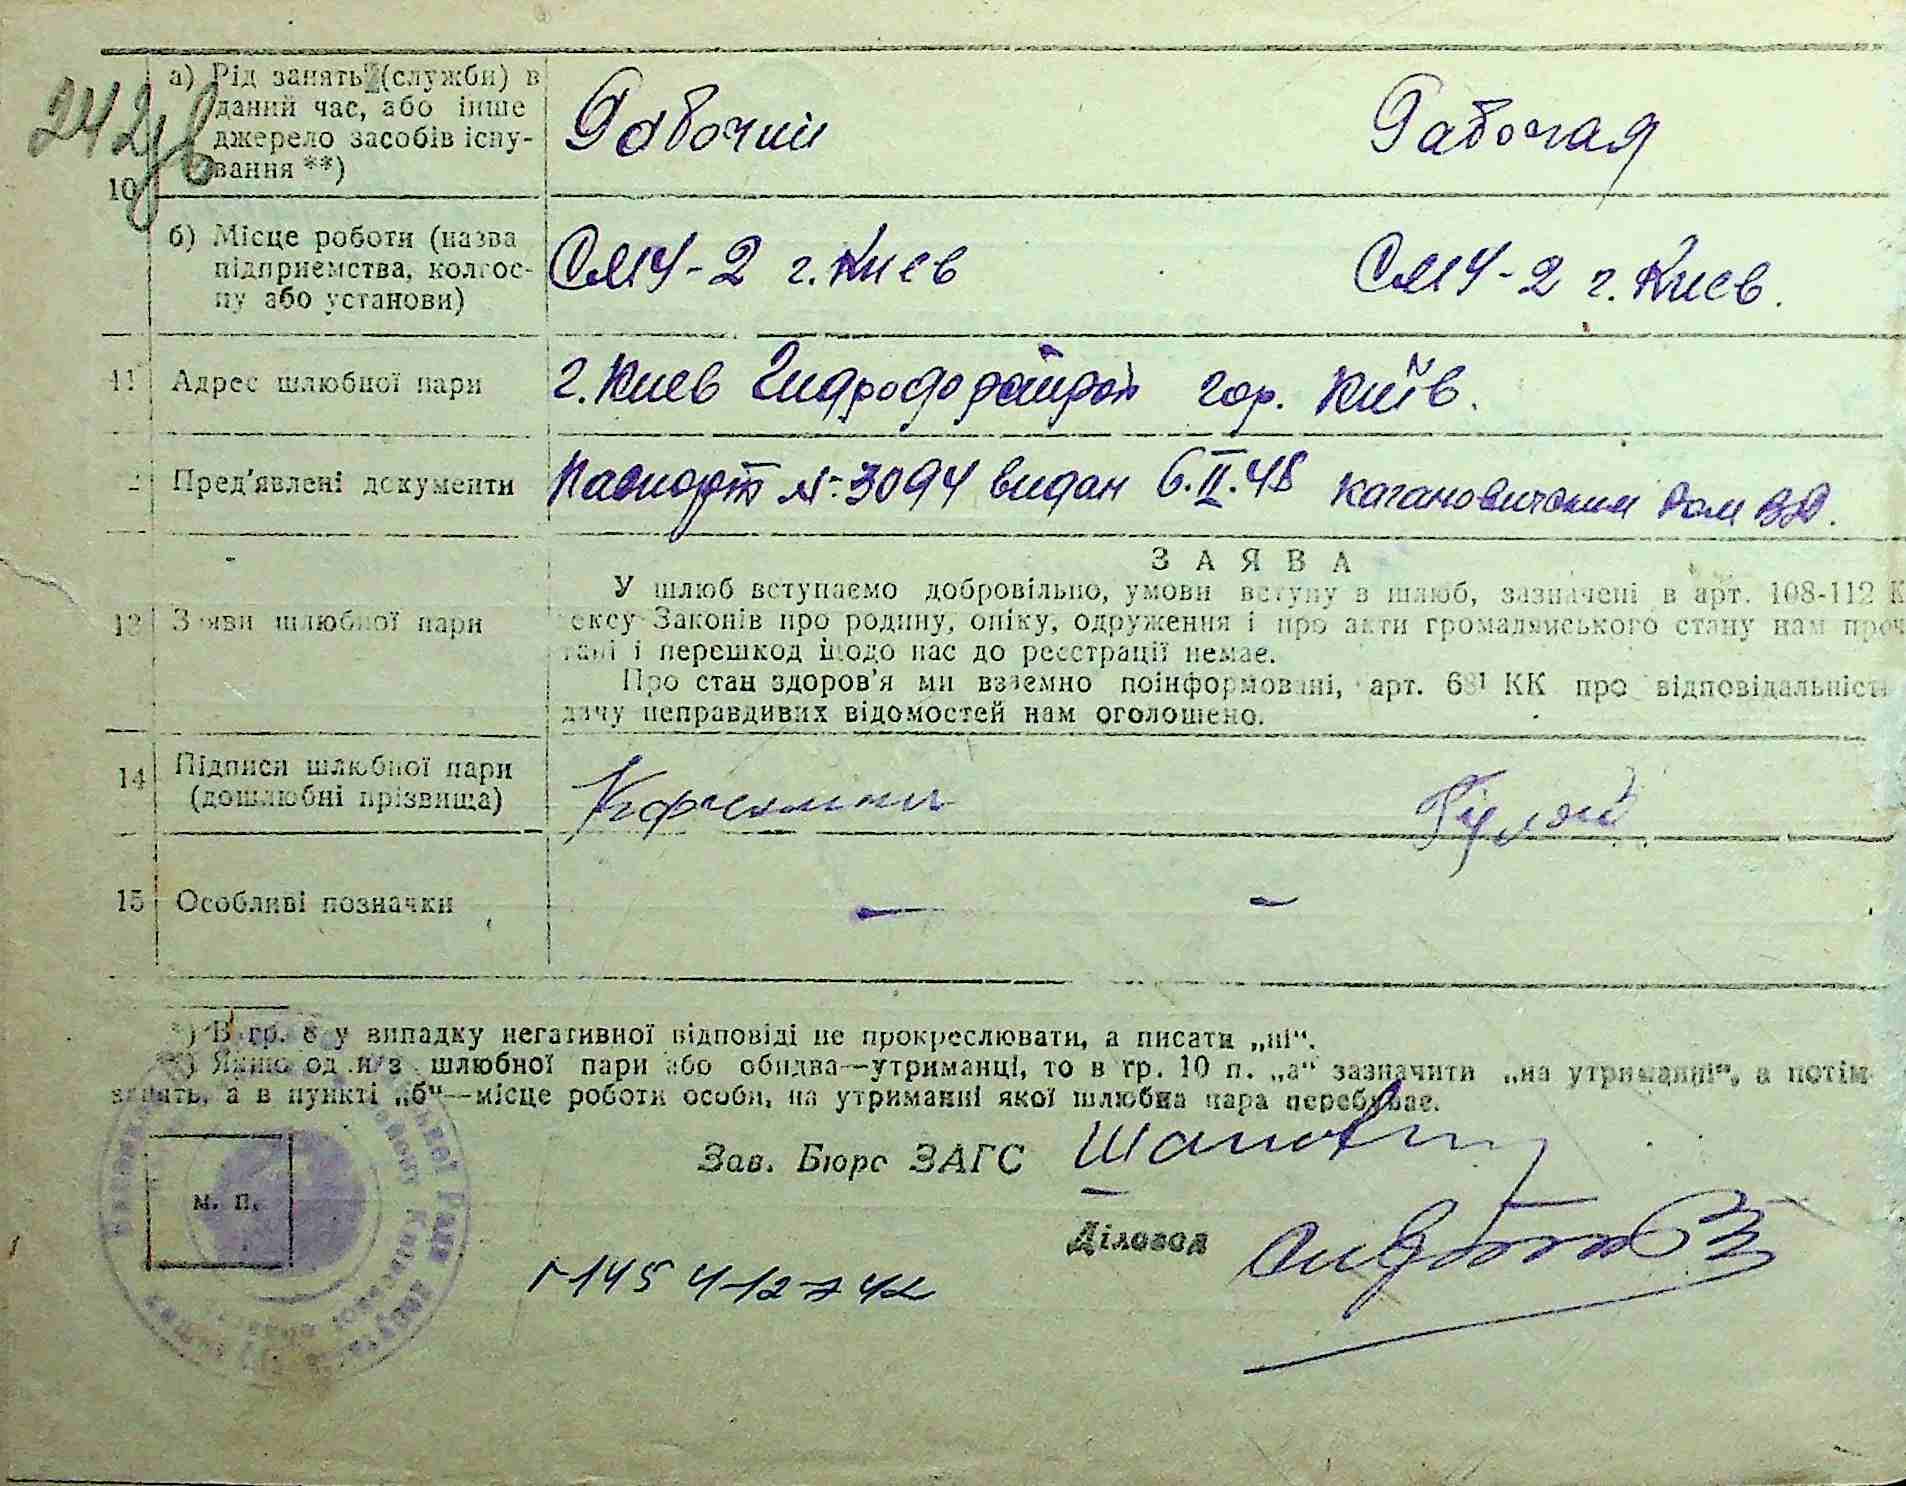 242зв
10
а) Рід занять (служби) в
даний час, або інше
джерело засобів існу-
вання **)
Рабочий
Рабочая
б) Місце роботи (назва
підприємства, колгос-
пу або установи)
СМУ-2 г. Киев
СМУ-2 г. Киев.
11 Адрес шлюбної пари
г. Киев гор. Київ.
2 Пред'явлені документи
Паспорт №-3094 видан 6.II.48 Кагановичским
13 Заяви шлюбної пари
ЗАЯВА
У шлюб вступаємо добровільно, умови вступу в шлюб, зазначені в арт. 108-112 К
ексу Законів про родину, опіку, одруження і про акти громадянського стану нам проч
тані і перешкод щодо нас до реєстрації немає.
Про стан здоров'я ми взаємно поінформовані, арт. КК про відповідальність
дачу неправдивих відомостей нам оголошено.
14 Підписи шлюбної пари
(дошлюбні прізвища)
15 Особливі позначки
-
-
*) В гр. 8 у випадку негативної відповіді не прокреслювати, а писати „ні“.
**) Якщо один з шлюбної пари або обидва—утриманці, то в гр. 10 п. „а“ зазначити „на утриманні“, а потім
занять, а в пункті „б“—місце роботи особи, на утриманні якої шлюбна пара перебуває.
м. п.
Зав. Бюро ЗАГС
Діловод